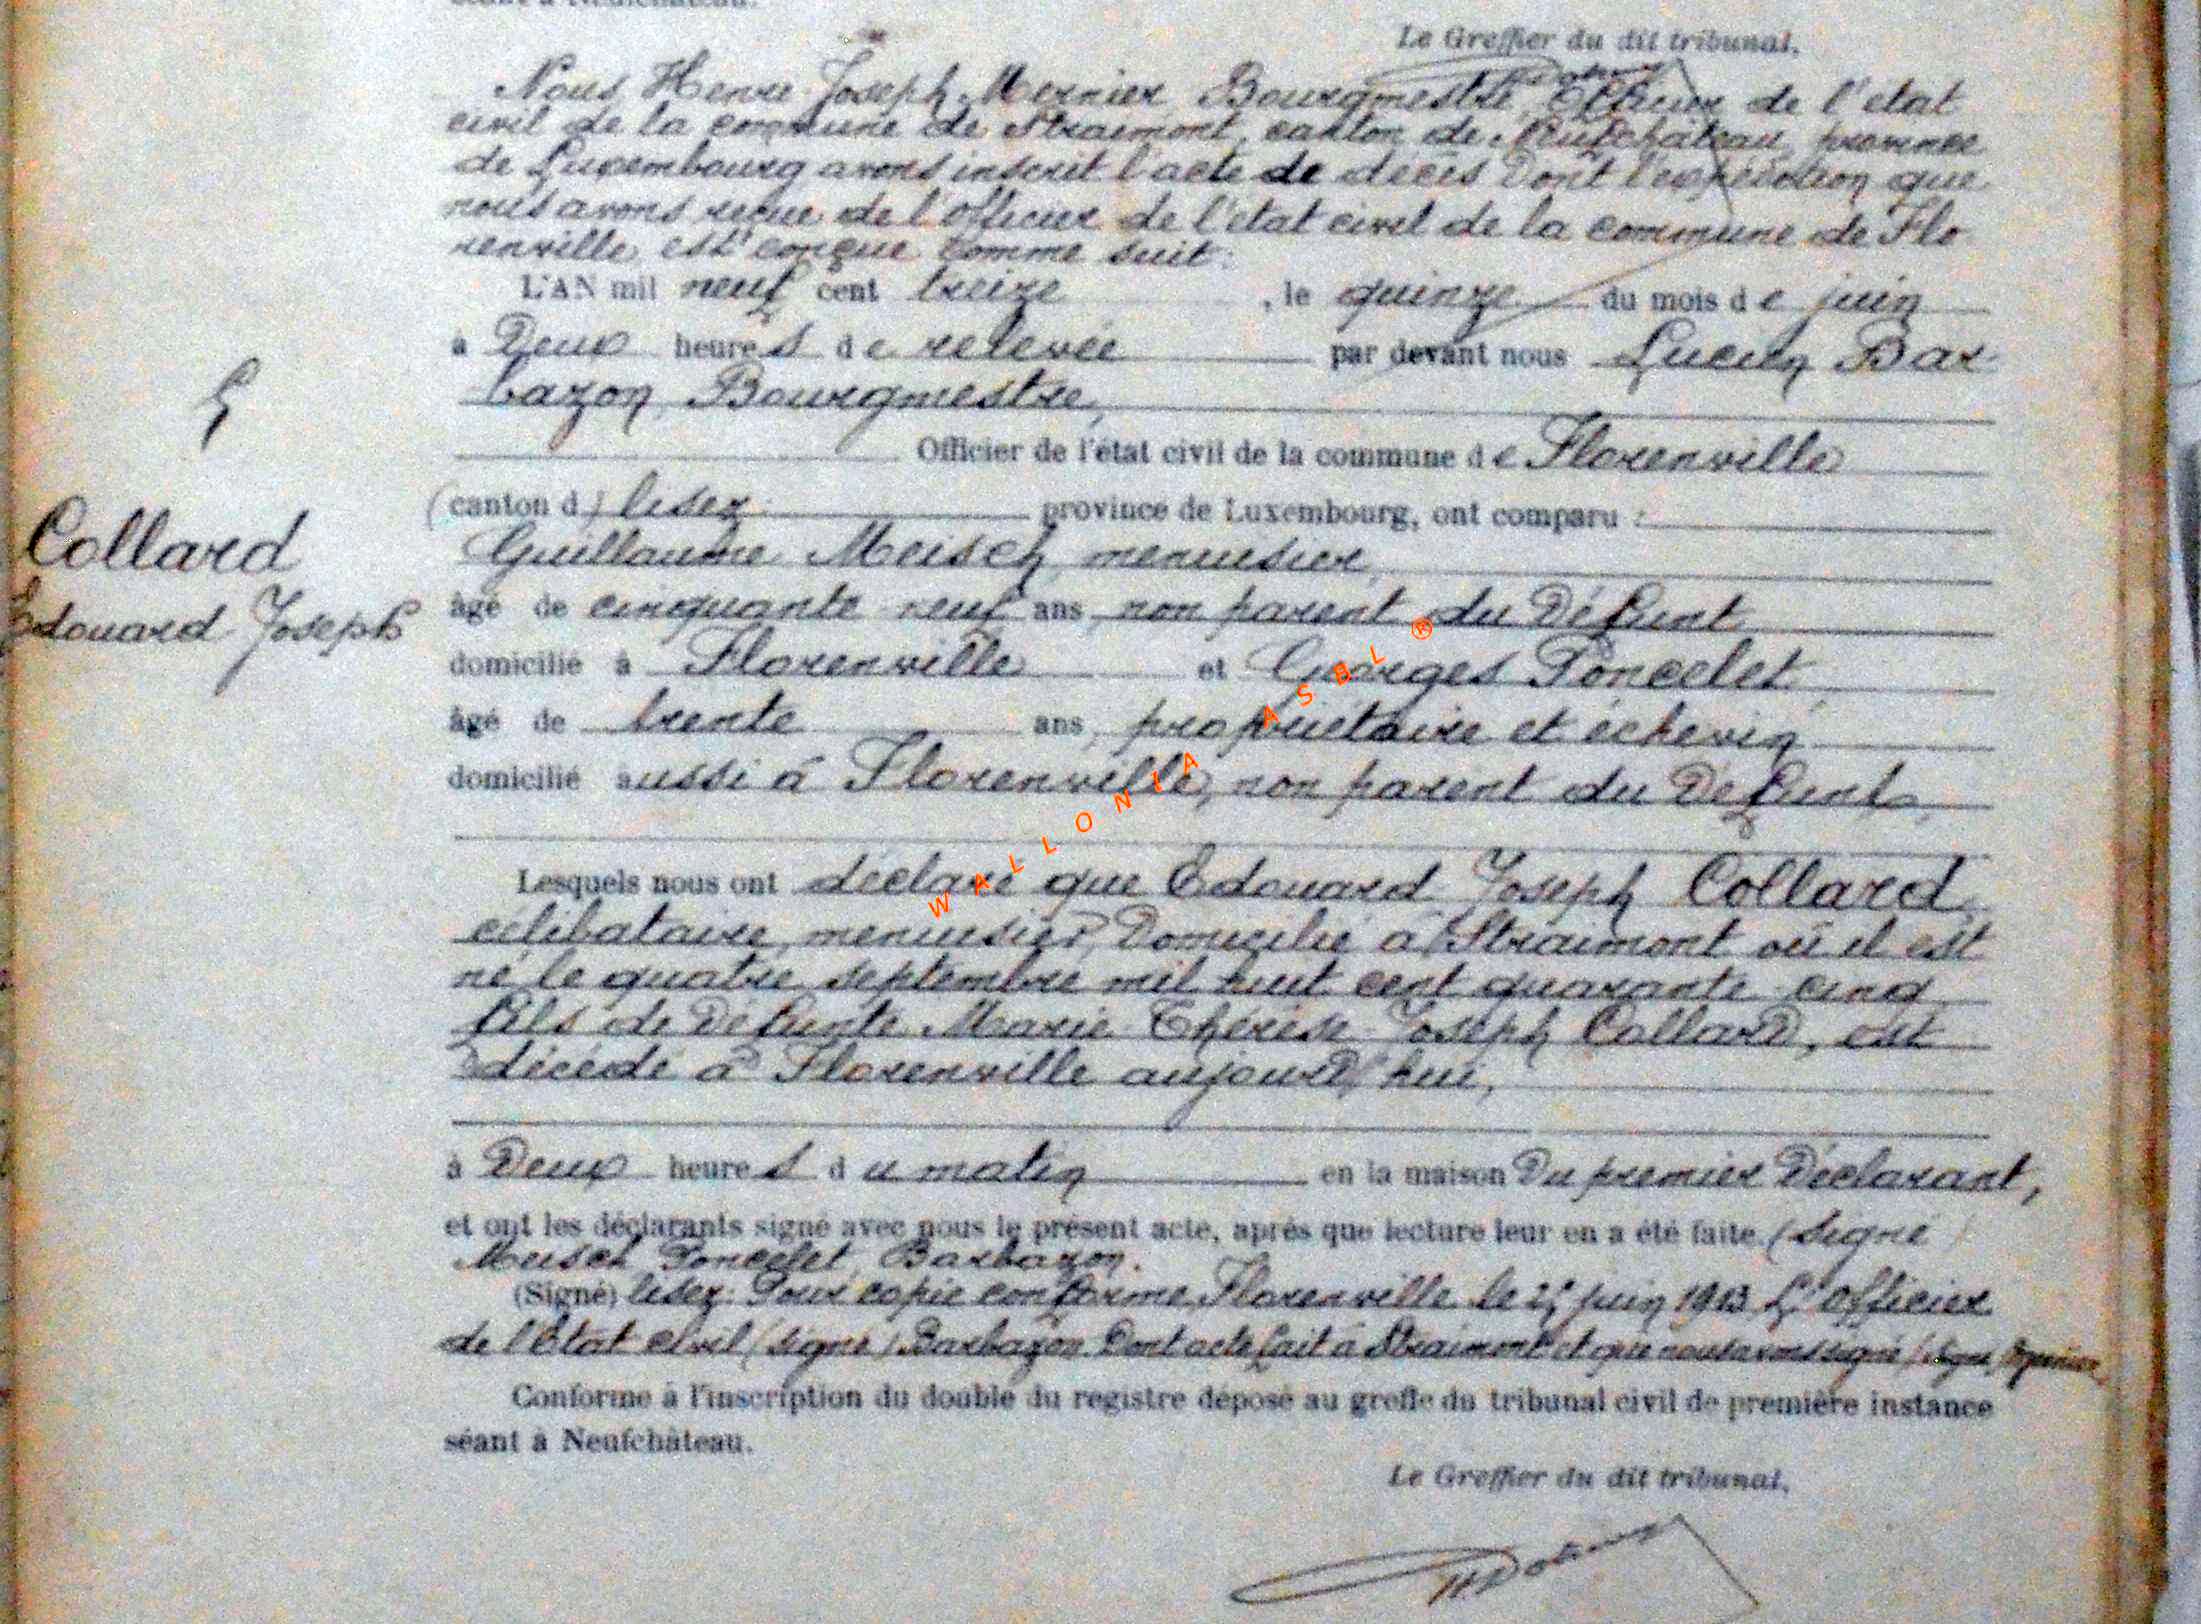 séant à Neufchâteau.
Le Greffier du dit tribunal,
Nous Henri Joseph Mernier Bourgmestre, Officier de l'état
civil de la commune de Straimont, canton de Neufchâteau, province
de Luxembourg avons inscrit l'acte de décès Dont l'expédition que
nous avons reçue de l'officier de l'état civil de la commune de Flo
renville est conçue comme suit:
L'AN mil neuf cent treize, le quinze du mois de juin
à Deux heures de relevée par devant nous Lucien Bar-
bazon, Bourgmestre,
Officier de l'état civil de la commune de Florenville
(canton d) lisez province de Luxembourg, ont comparu :
Guillaume Meisch, menuisier,
Collard
Edouard Joseph
âgé de cinquante neuf ans non parent du Défunt
domicilié à Florenville et Georges Poncelet,
âgé de trente ans, propriétaire et échevin
domicilié aussi à Florenville, non parent du Défunt,
Lesquels nous ont déclaré que Edouard Joseph Collard,
célibataire, menuisier, Domicilié à Straimont où il est
né le quatre septembre mil huit cent quarante cinq
fils de Défunte Marie Thérèse Joseph Collard, est
décédé à Florenville aujourd'hui,
à Deux heures du matin en la maison Du premier Déclarant,
et ont les déclarants signé avec nous le présent acte, après que lecture leur en a été faite. (Signé)
Meisch Poncelet, Barbazon.
(Signé) lisez: Pour copie conforme, Florenville le juin 1913 L'officier
de l'Etat civil (signé) Barbazon. Dont acte fait à Straimont et que nous avons signé (signé) Mernier
Conforme à l'inscription du double du registre déposé au greffe du tribunal civil de première instance
séant à Neufchâteau.
Le Greffier du dit tribunal,
WALLONIA ASBL ®